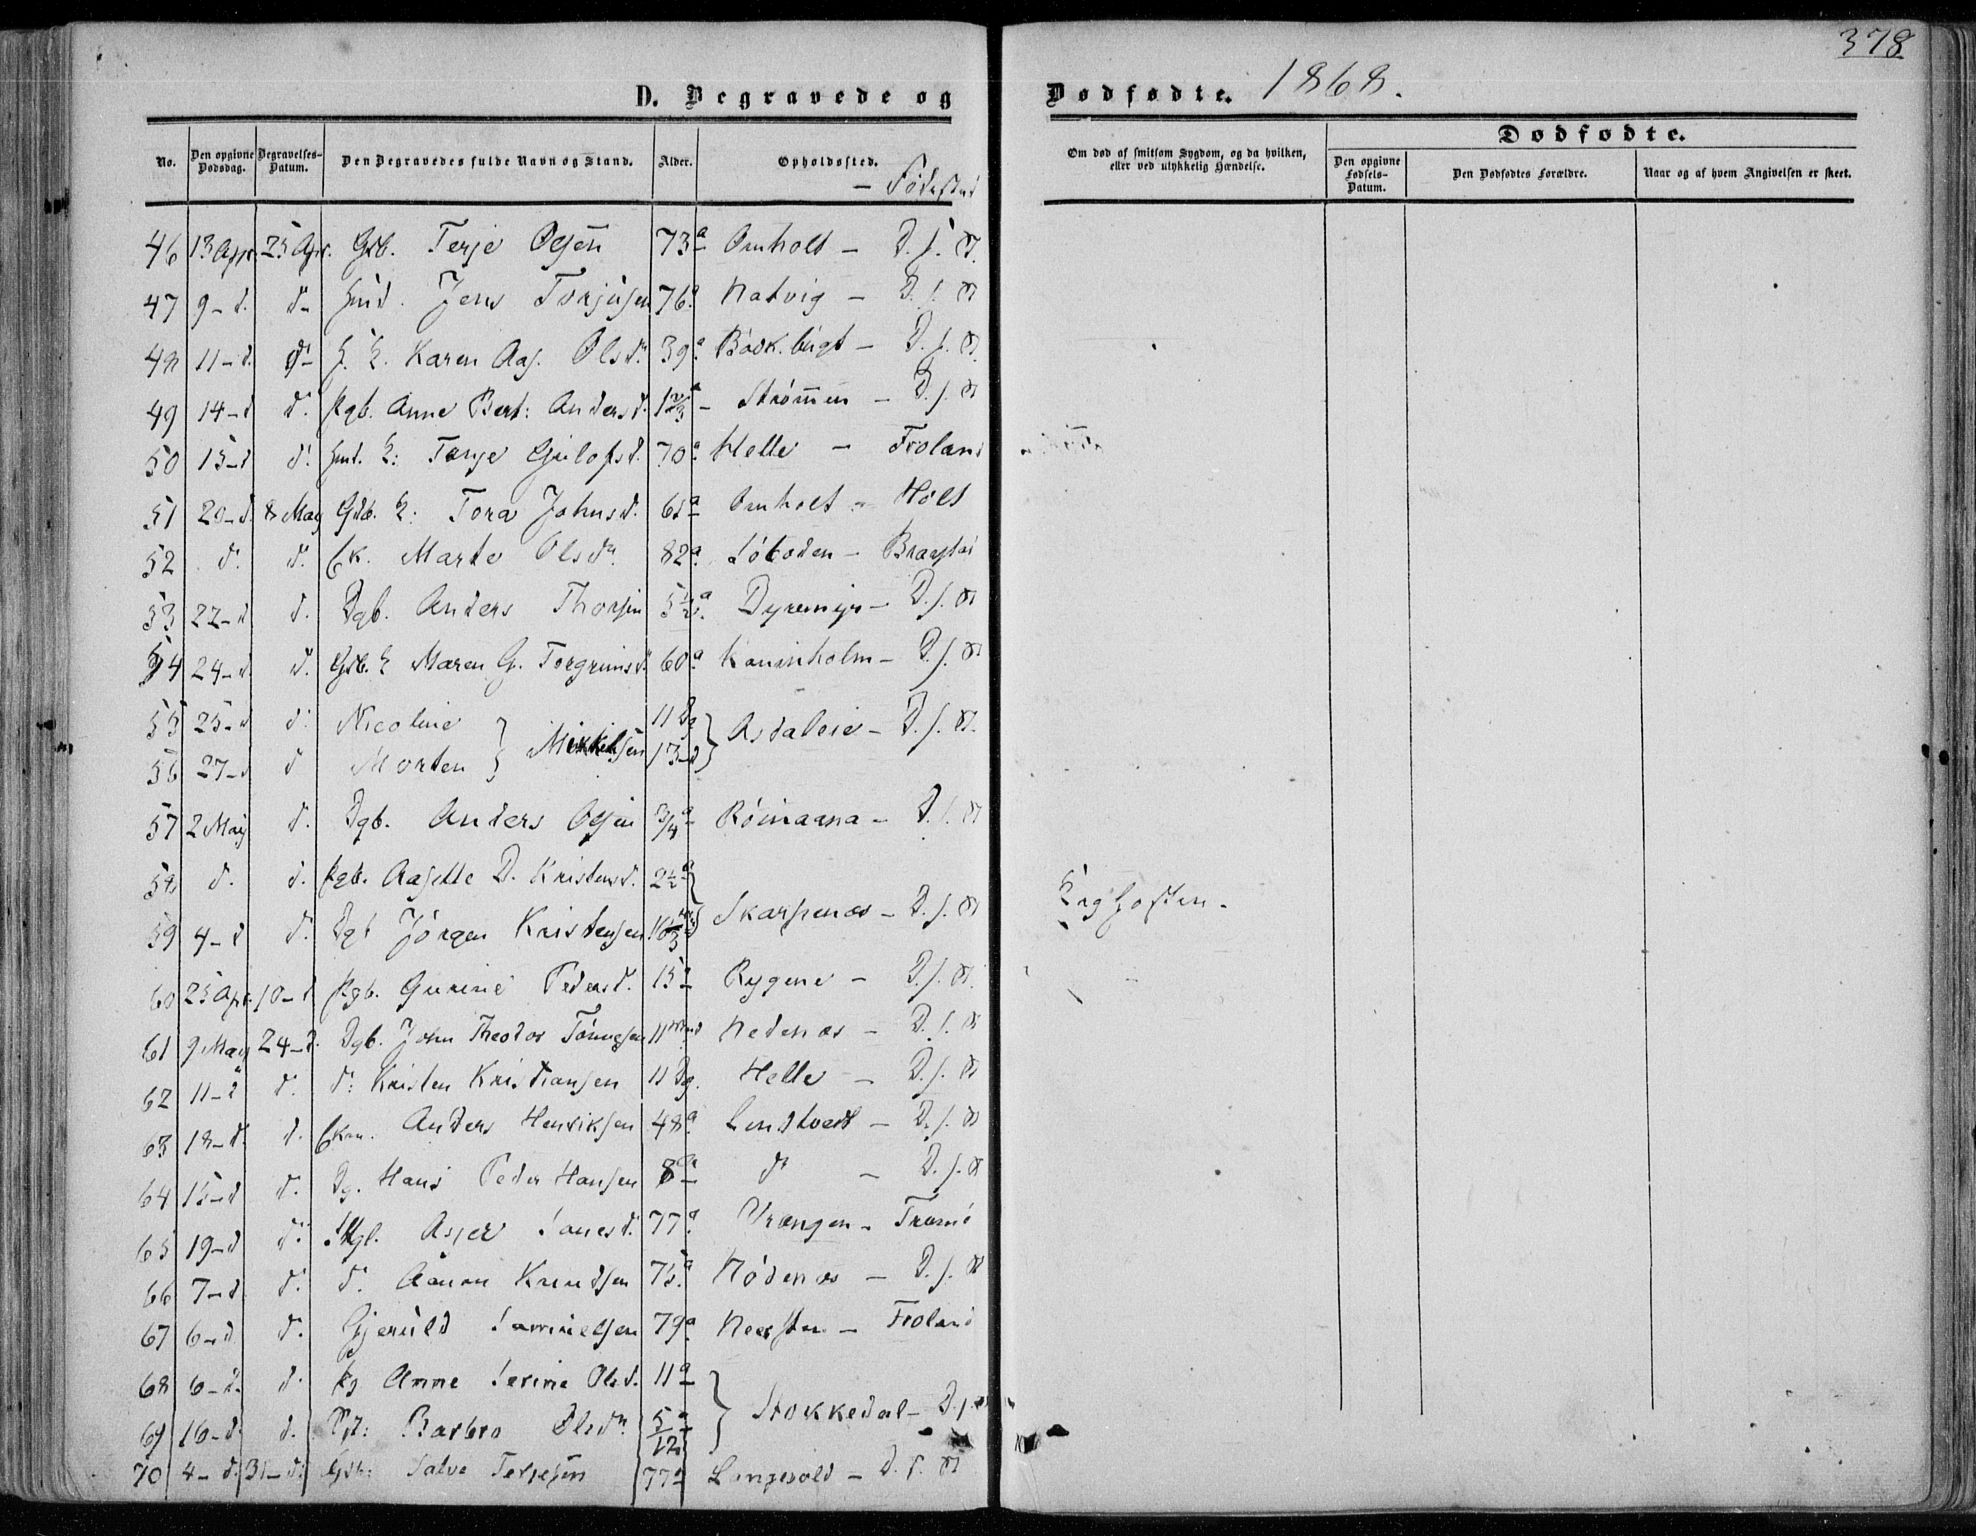 378
D. Begravede og Dødfødte. 1868.
No. Den opgivne Dødsdag. Begravelses-Datum. Den Begravedes fulde Navn og Stand. Alder. Opholdssted. – Fødested
Om død af smitsom Sygdom, og da hvilken, eller ved ulykkelig Hændelse.
Dødfødte.
Den opgivne Fødsels-Datum. Den Dødfødtes Forældre. Naar og af hvem Angivelsen er skeet.
46 13 Apr. 25 Apr. Gdb. Terje Olsen 73 a Omholt – D. s. St.
47 9 – d. d. Huusm. Jens Torjusen 76 a Natvig – D. s. St.
48 11 – d. d. Karen Aas. Olsdr. 39 a – D. s. St.
49 14 – d d. Pgb. Anne Bert: Andersd. 1 2/3 a – Strømmen – D. s. St.
50 15 – d d. Terje 70 a Helle – Froland
51 20 – d. 8 May Gdb. E: Tora Johnsd. 65 a Omholt – Holt
52 d. d. Marte Olsdr. 82 a – Braastad
53 22 – d d. Dgb. Anders 5 1/2 a Dyremyr – D. s. St.
54 24 – d. d. Gdb. E Maren G. Torgrimsd. 60 a Kaninholm – D. s. St.
55 25 – d d. Nicoline } Mikkelsen 11 Dg } Asdaleie – D. s. St.
56 27 – d d Morten 13 – d
57 2 May d. Dgb. Anders Olsen 3/4 a – D. s. St.
58 d. d. Pgb. Aasette D. Kristensd. 2 1/2 a } Skarpenæs – D. s. St. Kighosten.
59 4 – d d. Dgb Jörgen Kristensen
60 25 Apr. 10 – d Pgb. Gurine Pedersd. 15 a Rygene – D. s. St.
61 9 May 24 – d. Dgb. John Theodor Tönnesen 11 Mnd Nedenæs – D. s. St.
62 11 – d d. d: Kristen Kristiansen 11 Dg. Helle – D. s. St.
63 18 – d. d. Anders Henriksen 48 a Lindtvedt – D. s. St.
64 15 – d d. Dg. Hans Peder Hansen 8 a d – D. s. St.
65 19 – d d. Asjer 77 a Vrængen – Tromö
66 7 – d d. d. Aanon Knudsen 75 a Nödenæs – D. s. St.
67 6 – d d. Gjeruld Samuelsen 79 a – Froland
68 6 – d. d. Pg Anne Serine Olsd. 11 a } Stokkedal – D. s. St.
69 16 – d. d. Barbro Olsdr. 5/12 a
70 4 – d. 31 – d. Gdb: Salve Terjesen 77 a – D. s. St.